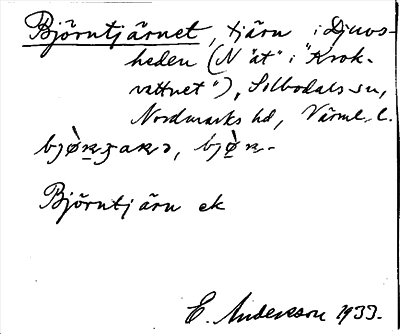 Björntjärnet, tjärn i Djuvs-
heden (N "ät" i "Krok-
vattnet"), Silbodals sn,
Nordmarks hd, Värml. l.
Björntjärn ek
E. Andersson 1933.